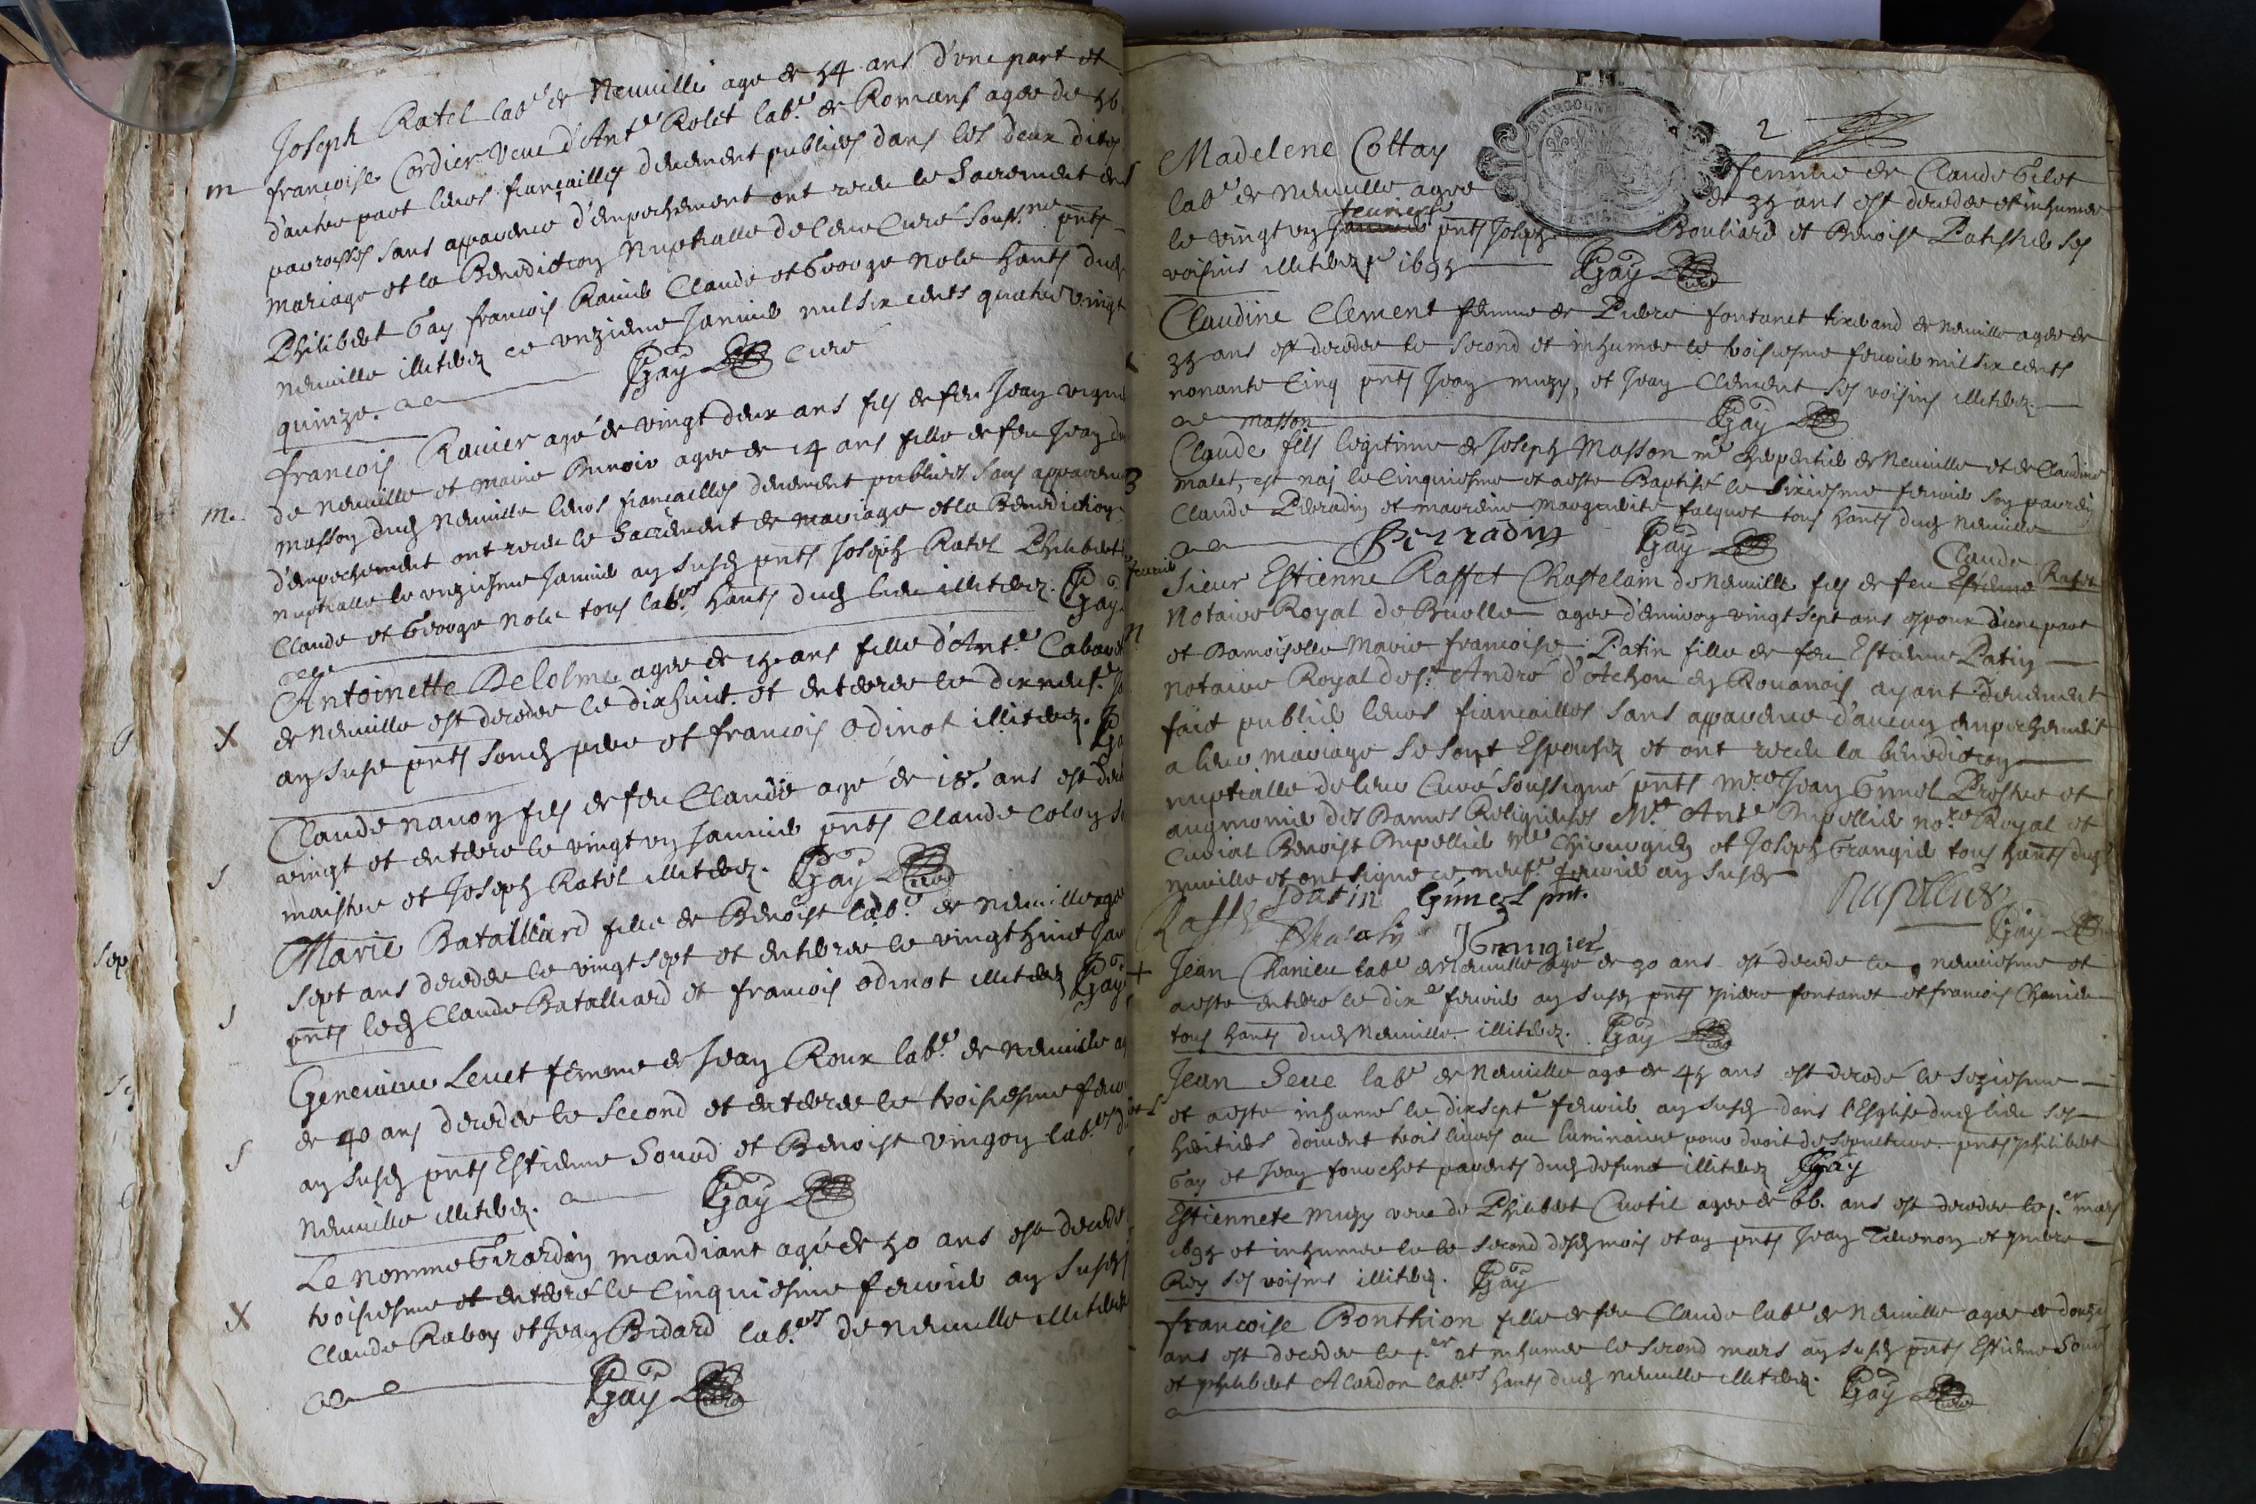 Joseph Ratel lab.r de Neuville age de 54 ans d'une part et
m francoise Cordier veue d'Ant.e Rolet lab.r de Romans agee de 56
d'autre part leurs fiançailles deuement publiees dans les deux dites
parroisses sans apparence d'empechement ont receu le Sacrement de
mariage et la Benediction Nuptialle de leur Curé souss.né pnts
Philibert Gay francois Rauier Claude et George Nole hants dud
Neuuille illiterez ce unzieme Januier mil six cents quatre vingt
quinze. Gay Curé
francois Rauier agé de vingt deux ans fils de feu Jean vigne
de neuuille et marie agee de 24 ans fille de feu Jean
m. masson dud Neuuille leurs fiancailles deuement publiees sans apparence
d'empechement ont receu le Sacrement de mariage et la Benediction
nuptialle le unziesme Januier an susd pnts Joseph Ratel Philibert
Claude et George nole tous lab.rs hants dud lieu illiterez. Gay
Antoinette Delolme agee de ans fille d'Ant.e
X de Neuuille est decedee le dixhuit. et enterree le dixneuf.
an susd pnts sond pere et francois odinot illiterez. Gay
Claude nauon fils de feu Claude agé de 18. ans est
vingt et enterré le vingt un Januier pnts Claude Colon
S maistre et Joseph Ratel illiterez. Gay Curé
Marie Batalliard fille de Benoist lab.r de neuuille agee
sept ans decedee le vingt sept et enterree le vingt huit Jan
S pnts led Claude Batalliard et francois odinot illiterez Gay
Geneuieue Leuet femme de Jean Roux lab.r de neuuille
de 40 ans decedee le second et enterree le troisiesme feu
S an susd pnts Estienne Souard et Benoist vingon lab.rs
Neuuille illiterez. Gay
Le nommé Girardin mandiant agé de 50 ans est decedé
troisiesme et enterré le cinquiesme feurier an susd
X Claude Rabon et Jean Bidard lab.rs de neuuille illiterez
Gay Curé
2
BOURGOGNE
Madelene Cottay femme de Claude Gelet
lab.r de neuuille agee de 35 ans est decedee et inhumee
le vingt un feurier pnts Joseph Bouliard et Benoist Patissier ses
voisins illiterez 1695 Gay Curé
Claudine Clement femme de Pierre fontanet tixerand de neuuille agee de
35 ans est decedee le second et inhumee le troisiesme feurier mil six cents
nonante cinq pnts Jean muzy, et Jean Clement ses voisins illiterez.
Gay
masson
Claude fils legitime de Joseph Masson m.e chapentier de Neuuille et de Claudine
malet, est nay le cinquiesme et a esté Baptisé le sixiesme feurier son parrain
Claude Perradin et marreine Marguerite falquet tous hants dud neuuille
Perradin Gay
Claude
Sieur Estienne Raffet Chastelain de Neuuille fils de feu Estienne Rafet
Notaire Royal de Buelle agee d'enuiron vingt sept ans espoux d'une part
et Damoiselle Marie francoise Patin fille de feu Estienne Patin
notaire Royal de S.t André d'Achon en Rouanois ayant deuement
fait publier leurs fiancailles sans apparence d'aucun empechement
a leur mariage se sont Espousez et ont receu la benediction
nuptialle de leur Curé soussigné pnts M.re Jean Gunel Prestre et
augmonier des Dames Religieuses M.e Ant.e Dupellier no.re Royal et
curial Benoist Dupellier M.e Chirurgien et Joseph Grangier tous hants dud
neuuille et ont signe ce neuf.e feurier an susd
Raffet Patin Gunel pnt. Dupellier
JGrangier Gay
Jean Chanieu lab.r de Neuuille agé de 30 ans est decedé le neuuiesme et
a esté enterré le dix.e feurier an susd pnts pierre fontanet et francois Chanieu
tous hants dud Neuuille illiterez. Gay Curé
Jean Seue lab.r de Neuuille agé de 45 ans est decedé le seziesme
et a esté inhumé le dixsept.e feurier an susd dans l'Esglise dud lieu ses
heritiers doiuent trois liures au luminaire pour droit de sepulture. pnts philibert
Gay et Jean fourchet parents dud defunt illiterez Gay
Estiennete muzy veue de Philibert Curtil agee de 66. ans est decedee le p.er mars
1695 et inhumee le le second desd mois et an pnts Jean Teuenon et pierre
Rey ses voisins illiterez. Gay
francoise Bonthion fille de feu Claude lab.r de Neuuille agee de douze
ans est decedee le p.er et inhumee le second mars an susd pnts Estienne Soua
et philibert Alardon lab.rs hants dud neuuille illiterez. Gay Curé